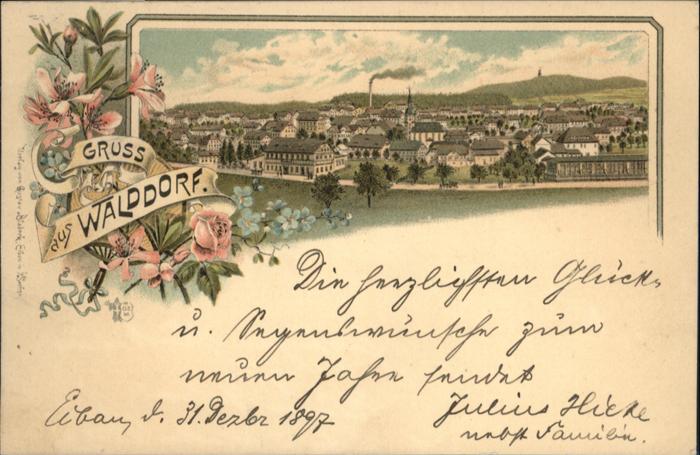 GRUSS
aus WALDDORF.
Die herzlichsten Glück-
u. Segenswünsche zum
neuen Jahre sendet
Julius
nebst Familie.
Eibau, d. 31. Dezbr 1897